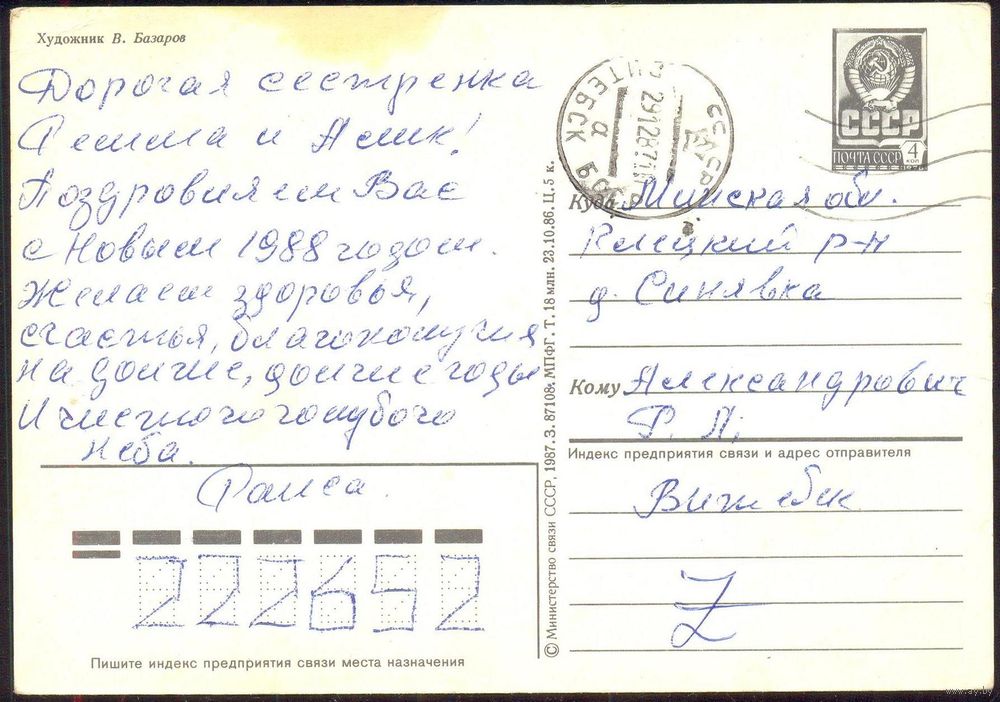 Художник В. Базаров
Дорогая сестренка
и Алик!
Поздравляем Вас
с Новым 1988 годом.
Желаем здоровья,
счастья, благополучия
на долгие, долгие годы
И чистого голубого
неба.
Раиса.
222652
Пишите индекс предприятия связи места назначения
© Министерство связи СССР, 1987. З. 87108. МПФГ. Т. 18 млн. 23.10.86. Ц. 5 к.
ВИТЕБСК
СССР
ПОЧТА СССР
4
КОП
Куда Минская обл.
Клецкий р-н
д. Синявка
Кому Александрович
Р. П.
Индекс предприятия связи и адрес отправителя
Витебск
www.ay.by